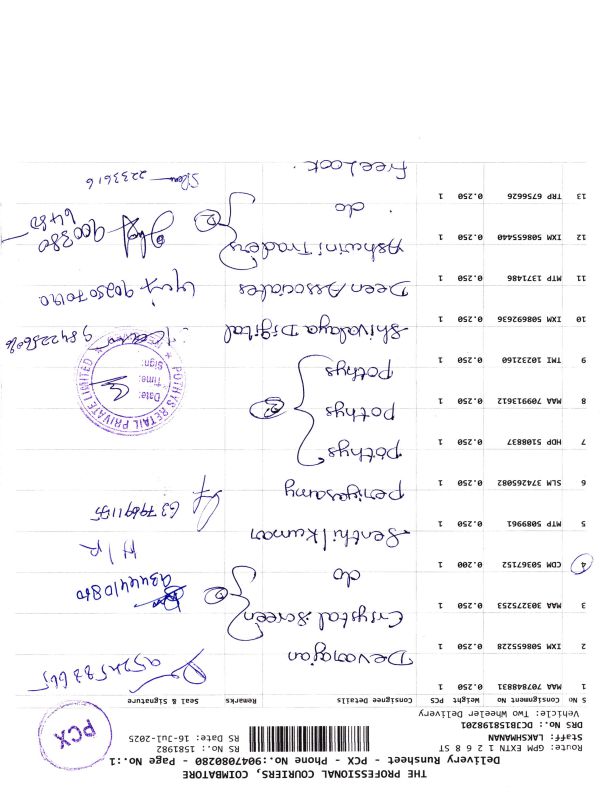 THE PROFESSIONAL COURIERS, COIMBATORE
Delivery Runsheet - PCX - Phone No.:9047080280 - Page No.:1
Route: GPM EXTN 1 2 6 8 ST
Staff: LAKSHMANAN
DRS No.: DC3B158198201
Vehicle: Two Wheeler Delivery
RS No.: 1581982
RS Date: 16-Jul-2025
PCX
S No Consignment No Weight PCS Consignee Details Remarks Seal & Signature
1 MAA 707848831 0.250 1 Devarajan
2 IXM 508655228 0.250 1 Crystal Screen
3 MAA 303275253 0.250 1 do 2 9344410810
4 CDM 50367152 0.200 1 Senthilkumar H/R
5 MTP 5089961 0.250 1 Periyasamy
6 SLM 374265082 0.250 1 Pothys
7 HDP 5108837 0.250 1 Pothys
8 MAA 709913612 0.250 1 Pothys
POTHYS RETAIL PRIVATE LIMITED
Date:
Time:
Sign:
9 TMI 10232160 0.250 1 Shivalaya Digital
10 IXM 508692636 0.250 1 Deen Associates
11 MTP 1371486 0.250 1 Ashwini Traders
12 IXM 508655440 0.250 1 do 2 900380 6480
13 TRP 6756626 0.250 1 Free Look 2233616